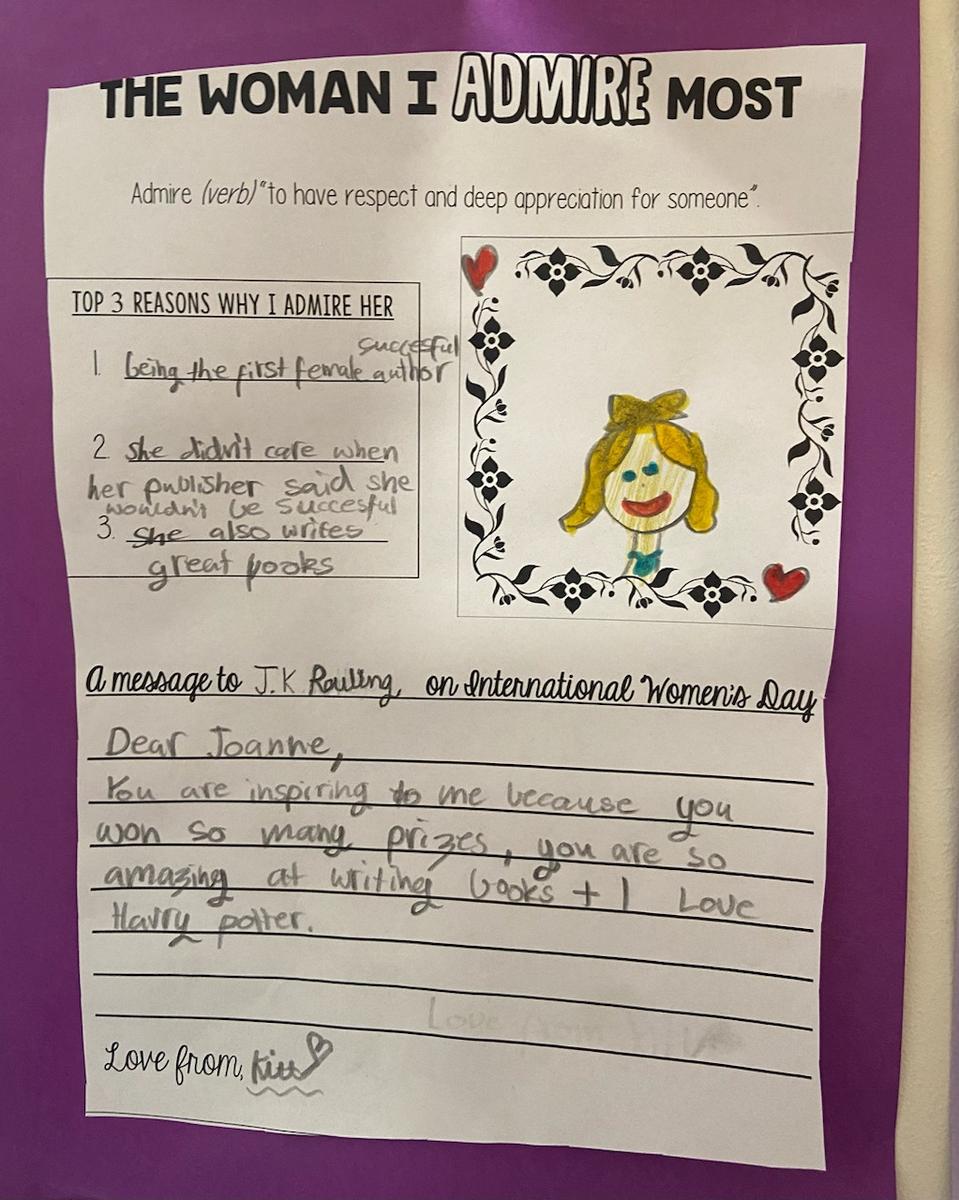 THE WOMAN I ADMIRE MOST
Admire (verb) "to have respect and deep appreciation for someone".
TOP 3 REASONS WHY I ADMIRE HER
succesful
1. being the first female author
2. she didn't care when
her publisher said she
wouldn't be succesful
3. she also writes
great books
A message to J.K Rowling, on International Women's Day
Dear Joanne,
You are inspiring to me because you
won so many prizes, you are so
amazing at writing books + I Love
Harry potter.
Love from
Love from,